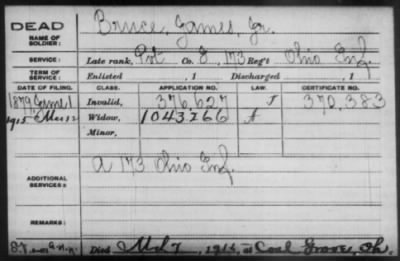 DEAD
NAME OF SOLDIER:
Bruce, James, Jr.
SERVICE: Late rank, Pvt Co. E, 173 Reg't Ohio Inf.
TERM OF SERVICE: Enlisted , 1 Discharged , 1
DATE OF FILING. CLASS. APPLICATION NO. LAW. CERTIFICATE NO.
1879 June 1 Invalid, 376,627 J 370,383
1915 Widow, 1043266 A
Minor,
ADDITIONAL SERVICES:
A 173 Ohio Inf.
REMARKS:
Died 7, 191 at Coal Grove, Oh.